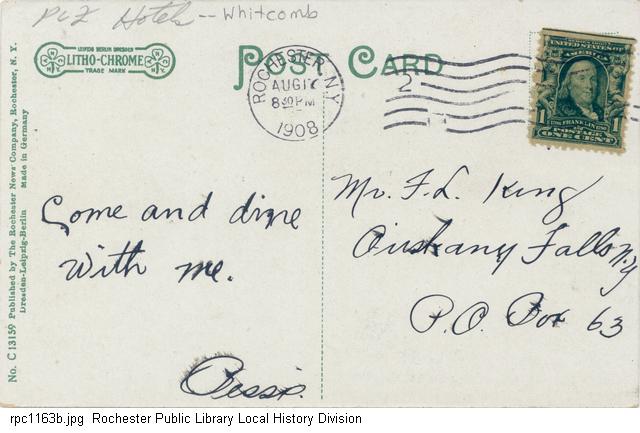 PcZ Hotels -- Whitcomb
LEIPZIG BERLIN DRESDEN
LITHO-CHROME
TRADE MARK
POST CARD
ROCHESTER, N.Y.
AUG 17
8 30 PM
1908
2
UNITED STATES OF AMERICA
1 FRANKLIN 1
POSTAGE
ONE CENT
No. C 13159 Published by The Rochester News Company, Rochester, N. Y.
Dresden-Leipzig-Berlin Made in Germany
Come and dine
with me.
Bessie.
Mr. F. L. King
Oriskany Falls N.Y.
P.O. Box 63
rpc1163b.jpg Rochester Public Library Local History Division